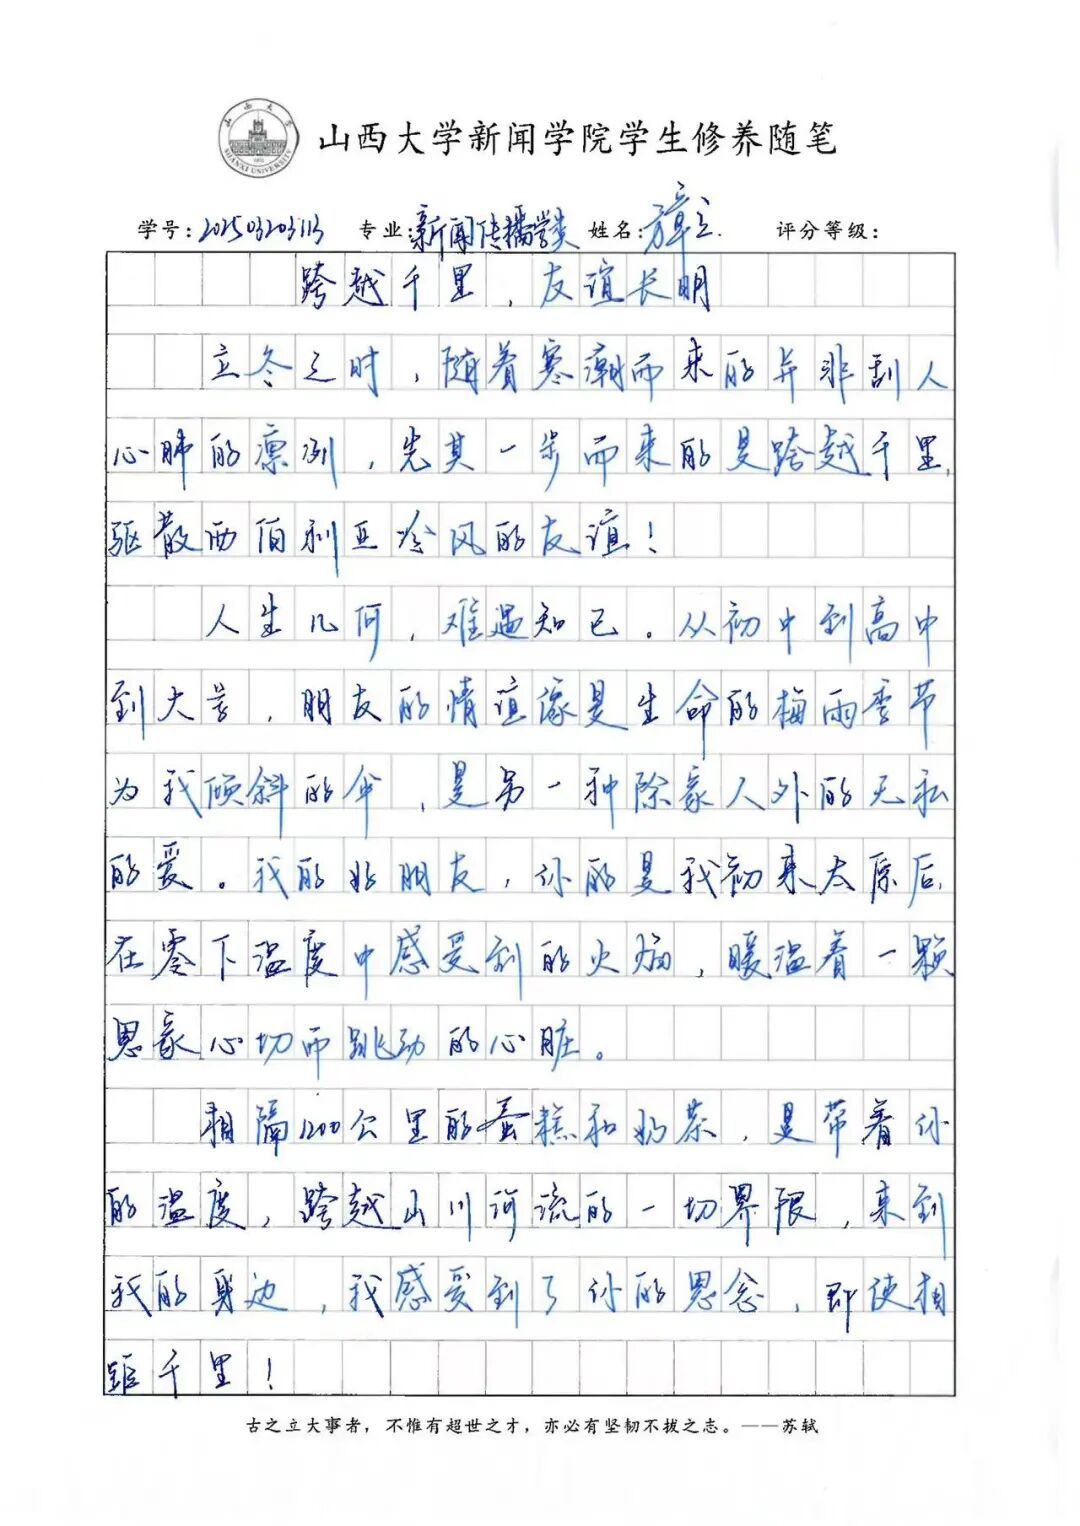 山西大学新闻学院学生修养随笔
学号: 202503203113 专业: 新闻传播学类 姓名: 评分等级:
跨越千里，友谊长明
立冬之时，随着寒潮而来的并非刮人
心肺的凛冽，先其一步而来的是跨越千里，
驱散西伯利亚冷风的友谊！
人生几何，难遇知己。从初中到高中
到大学，朋友的情谊像是生命的梅雨季节
为我倾斜的伞，是另一种除家人外的无私
的爱。我的好朋友，你的是我初来太原后，
在零下温度中感受到的火焰，暖温着一颗
思家心切而跳动的心脏。
相隔1200公里的蛋糕和奶茶，是带着你
的温度，跨越山川河流的一切界限，来到
我的身边，我感受到了你的思念，即使相
距千里！
古之立大事者，不惟有超世之才，亦必有坚韧不拔之志。——苏轼